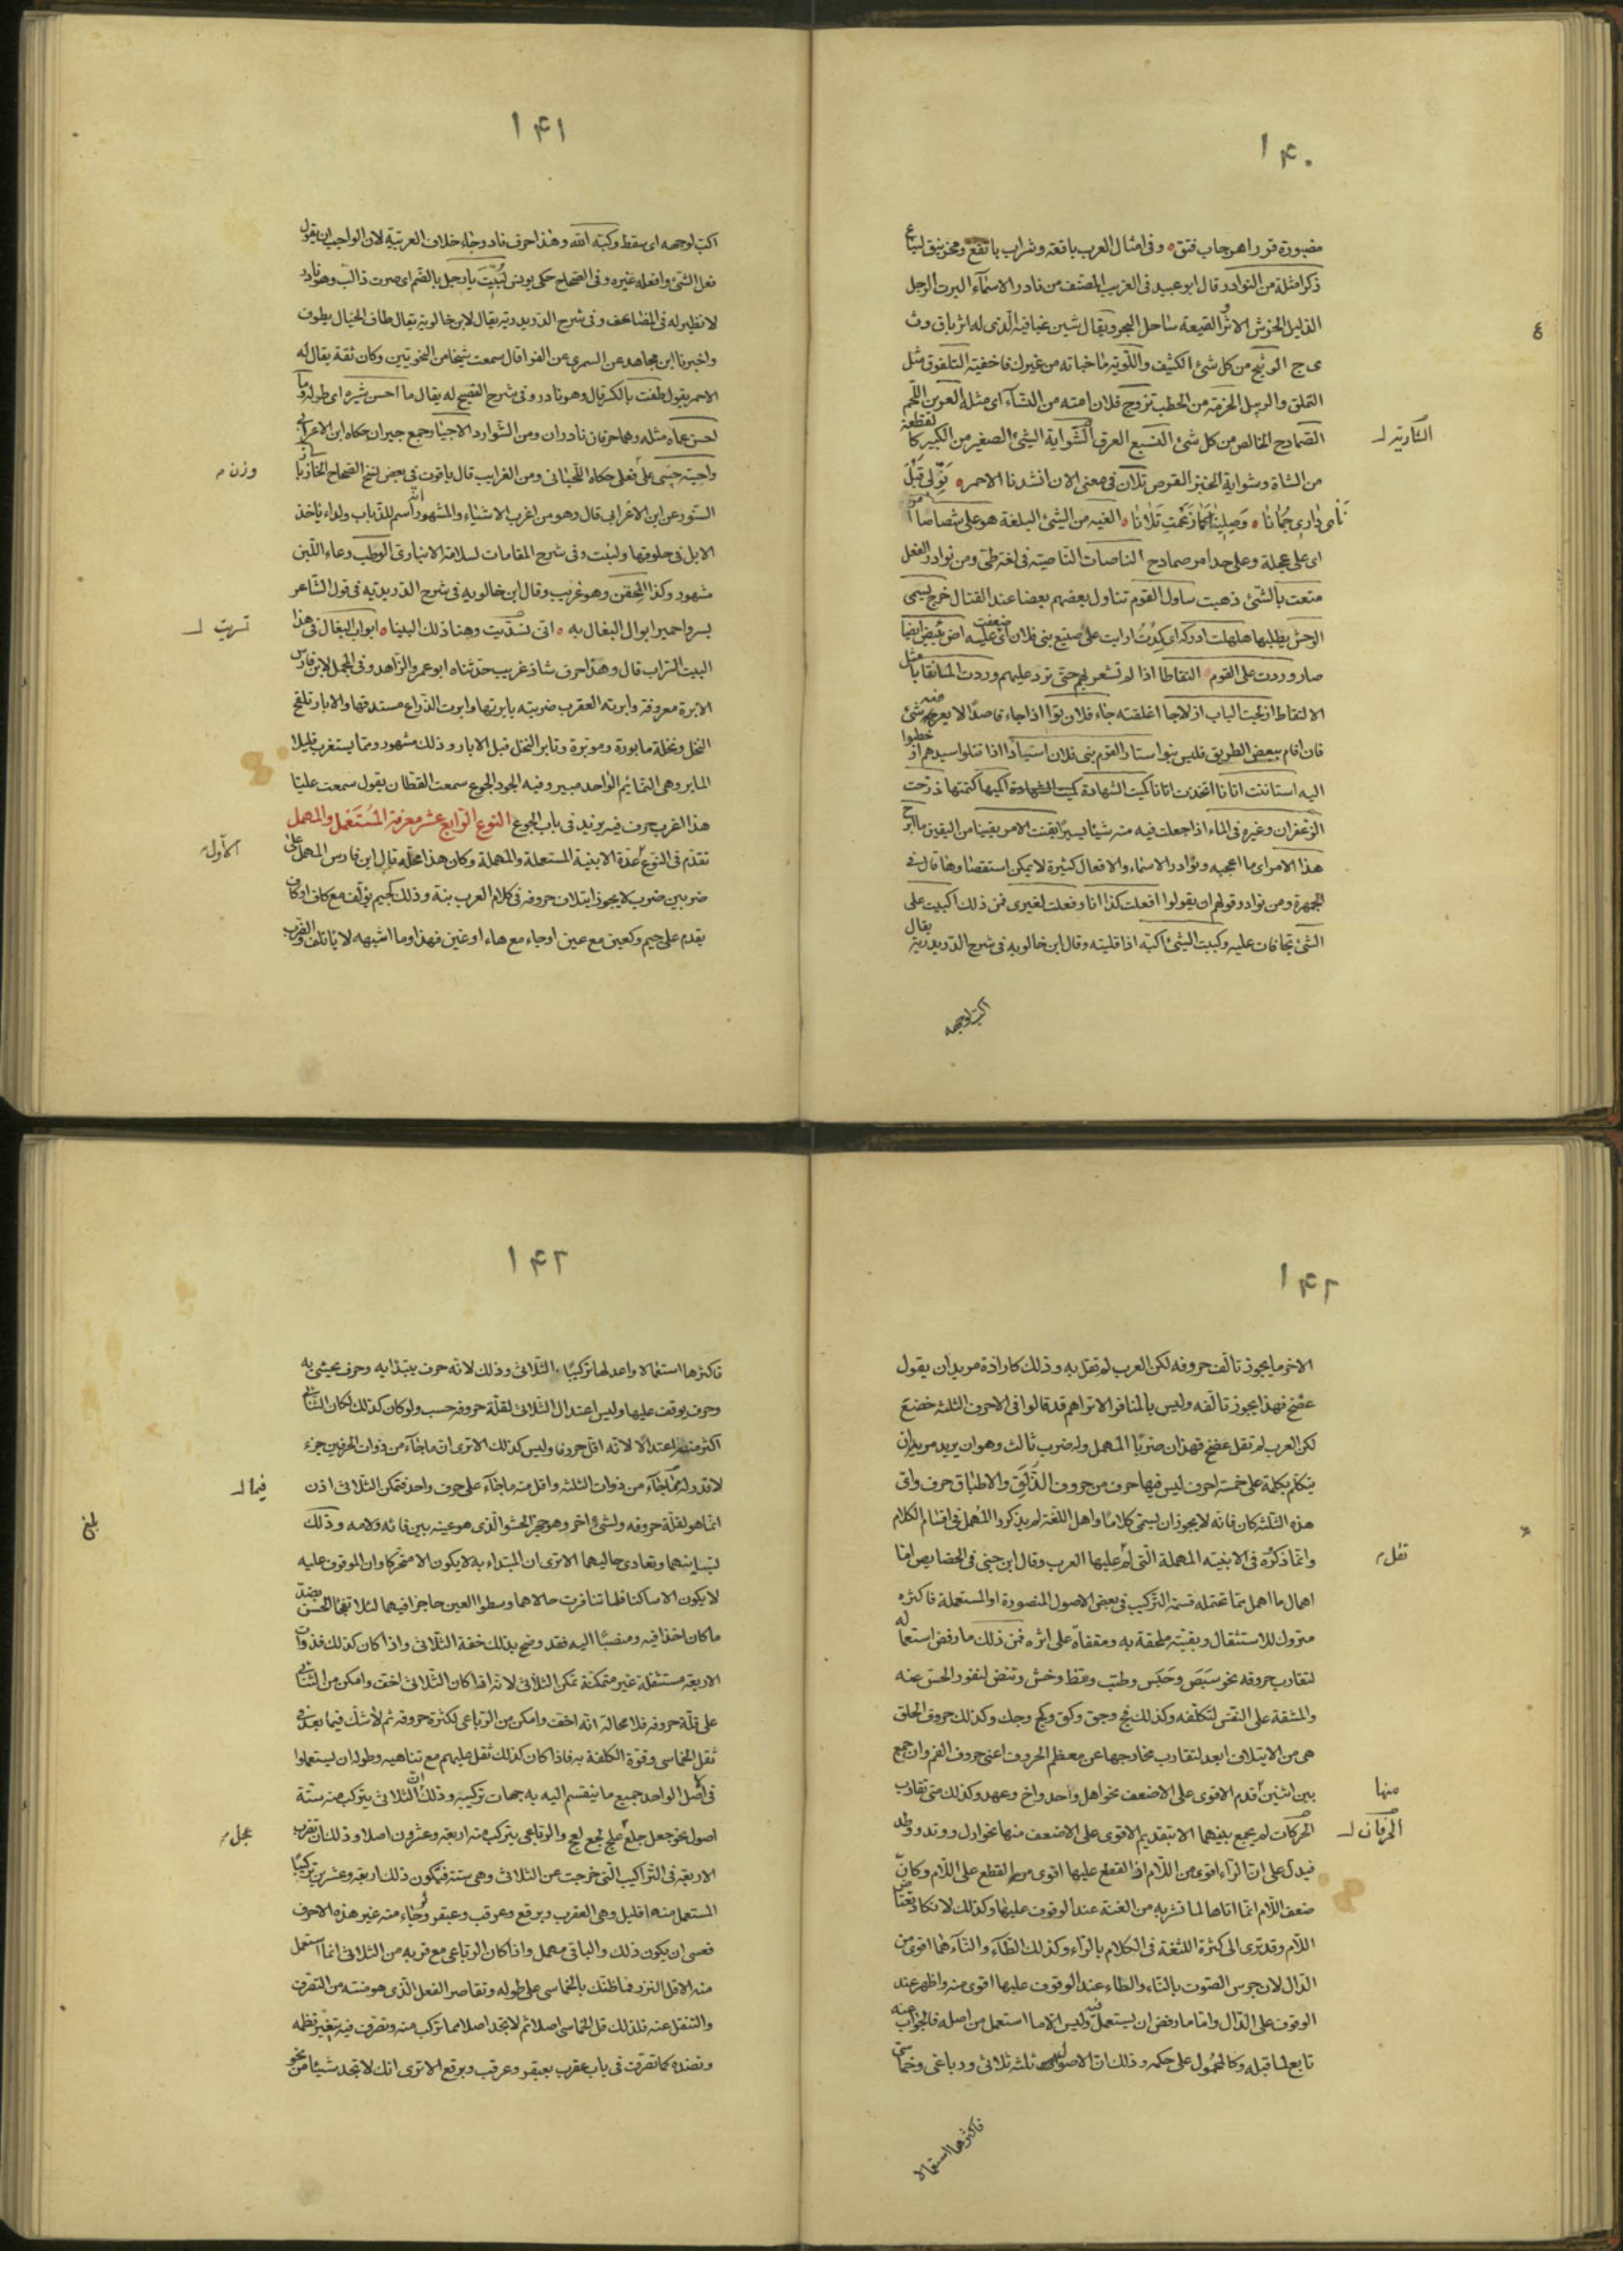 ١۴٠
مضبورة قرواء هرجاب فنق ه وفى امثال العرب باقعة وشراب بانقع ومخرنبق لينباع
ذكر امثلة من النوادر قال ابو عبيد فى الغريب المصنف من نادر الاسماء البرت الرجل
الدليل الخوش الاثر القيعة ساحل البحر ويقال شين عباقية الذى له اثر باق وث
ى ج الوثيج من كل شئ الكثيف واللوية ما خباته من غيرك فاخفيته التلفوق مثل
التملق والرسل الحزمة من الحطب تزوج فلان امته من النساء اى مثله العرين اللحم
الصمادح الخالص من كل شئ النسيع العرق الشواية الشئ الصغير من الكبير كالقطعة
من الشاة وشواية الخبز القرص تلان فى معنى الان انشدنا الاحمر ه نَوِّلى قَبْلَ
نَأى دارى جُمانا ه وَصِلِينا كما زَعَمْتِ تَلانا ه الغيه من الشئ البلغة هو على شصاصا امر
اى على عجلة وعلى حد امر صمادح الناصات الناصية فى لغة طئ ومن نوادر الفعل
متعت بالشئ ذهبت ساول القوم تناول بعضهم بعضا عند القتال خرج يسمى
الوحش يطلبها هلهلت ادركه اى كدت اوابت على صنيع بنى فلان اى ضعفت عليه اض يئيض ايضا
صار وردت على القوم النقاطا اذا لم تشعر بهم حتى ترد عليهم وردت الماء نقابا مثل
الالتقاط ازلجت الباب ازلاجا اغلقته جاء فلان توا اذا جاء قاصدا لا يعرجه شئ
فان اقام ببعض الطريق فليس بتو استاد القوم بنى فلان استيادا اذا قتلوا سيدهم او خطبوا
اليه استاتنت اتانا اتخذت اتانا كميت الشهادة كميت الشهادة اكميها كتمتها ذرحت
الزعفران وغيره فى الماء اذا جعلت فيه منه شيئا يسيرا يقنت الامر يقينا من اليقين ما ابرح
هذا الامر اى ما اعجبه ونوادر الاسماء والافعال كثيرة لا يمكن استقصاوها قال فى
الجمهرة ومن نوادر قولهم ان يقولوا افعلت كذا انا وفعلت لغيرى فمن ذلك اكببت على
الشئ تجافات عليه وكببت الشئ اكبه اذا قلبته وقال ابن خالويه فى شرح الدريدية يقال
اكب لوجهه
١۴١
اكب لوجهه اى سقط وكبه الله وهذا حرف نادر جاء خلاف العربية لان الواجب ان يقول
فعل الشئ وافعله غيره وفى الصحاح حكى يونس لَبُبْتَ يا رجل بالضم اى صرت ذا لب وهو نادر
لا نظير له فى المضاعف وفى شرح الدريدية يقال لابن خالويه يقال طاف الخيال يطوف
واخبرنا ابن مجاهد عن السمرى عن الفرا قال سمعت شيخا من النحويين وكان ثقة يقال له
الاحمر يقول طفت بالكسر قال وهو نادر وفى شرح الفصيح له يقال ما احسن شبره اى طوله وما
احسن عماه مثله وهما حرفان نادران ومن الشوارد الاجيار جمع جيران حكاه ابن الاعرابى
واجبته جيبى على فعلى حكاه اللحيانى ومن الغرايب قال ياقوت فى بعض نسخ الصحاح الخازباز
السنور عن ابن الاعرابى قال وهو من اغرب الاشياء والمشهور انه اسم للذباب ولداء ياخذ
الابل فى حلوقها ولنبت وفى شرح المقامات لسلامة الانبارى الوطب وعاء اللبن
مشهور وكذا المحقن وهو غريب وقال ابن خالويه فى شرح الدريدية فى قول الشاعر
بسرو حمير ابوال البغال به ه انى تسديت وهنا ذلك البينا ه ابوال البغال فى هذا
البيت السراب قال وهذا حرف شاذ غريب حدثناه ابو عمر والزاهد وفى المجمل لابن فارس
الابرة معروفة وابرته العقرب ضربته بابرتها وابرت الذراع مستدقها والابار تلقيح
النخل ونخلة مابورة وموبرة وتابر النخل قبل الابار وذلك مشهور ومما يستغرب قليلا
المابر وهى النمائم الواحد مبير وفيه الجود الجوع سمعت القطان يقول سمعت عليا
هذا اغرب حرف فيه يريد فى باب الجوع النوع الرابع عشر معرفة المُستَعمَل والمهمل
تقدم فى النوع عدة الابنية المستعملة والمهملة وكان هذا محله قال ابن فارس المهمل على
ضربين ضرب لا يجوز ايتلاف حروفه فى كلام العرب بتة وذلك كجيم تؤلف مع كاف او كاف
يقدم على جيم وكعين مع عين او حاء مع هاء او غين فهذا وما اشبهه لا ياتلف والضرب
وزن م
تسريت لـ
الاول م
١۴٢
الاخر ما يجوز تالف حروفه لكن العرب لم تقل به وذلك كارادة مريد ان يقول
عضخ فهذا يجوز تالفه وليس بالمنافر الا تراهم قد قالوا فى الاحرف الثلثه خضع
لكن العرب لم تقل عضخ فهذان ضربا المهمل وله ضرب ثالث وهو ان يريد مريد ان
يتكلم بكلمة على خمسة احرف ليس فيها حرف من حروف الذَّلَق والاطباق حرف واى
هذه الثلثه كان فانه لا يجوز ان يسمى كلاما واهل اللغة لم يذكروا المهمل فى اقسام الكلام
وانما ذكروه فى الابنية المهملة التى لم عليها العرب وقال ابن جنى فى الخصايص اما
اهمال ما اهمل مما تحتمله قسمة التركيب فى بعض الاصول المتصورة او المستعملة فاكثره
متروك للاستثقال وبقيته ملحقة به ومقفاة على اثره فمن ذلك ما رفض استعماله
لتقارب حروفه نحو سَبَص وحَبَس وطتب وتقط وخش وتنض لنفور الحس عنه
والمشقة على النفس لتكلفه وكذلك قج وجق وكق وكج وجك وكذلك حروف الحلق
هى من الايتلاف ابعد لتقارب مخارجها عن معظم الحروف اعنى حروف الفم وان جمع
بين اثنين قدم الاقوى على الاضعف نحو اهل واحد واخ وعهد وكذلك متى تقارب
الحركات لم يجمع بينهما الا بتقديم الاقوى على الاضعف منها نحو ارل ووتد ووطد
فيدل على ان الراء اقوى من اللام اذ القطع عليها اقوى من القطع على اللام وكان
ضعف اللام انما اتاها لما تشربه من الغنة عند الوقوف عليها وكذلك لا تكاد تعتاض
اللام وقد ترى الى كثرة اللثغة فى الكلام بالراء وكذلك الطاء والتاء هما اقوى من
الدال لان جرس الصوت بالتاء والطاء عند الوقوف عليها اقوى منه واظهر عند
الوقوف على الدال واما ما رفض ان يستعمل فيه وليس الا ما استعمل من اصله فالجواب عنه
تابع لما قبله وكالمحمول على حكمه وذلك ان الاصول ثلثه ثلاثى ورباعى وخماسى
التاريه لـ
تقل م
منها
الحرفان لـ
فاكثرهما استعمالا
١۴٢
فاكثرها استعمالا واعدلها تركيبا الثلاثى وذلك لانه حرف يبتدا به وحرف يحشى به
وحرف يوقف عليها وليس اعتدال الثلاثى لقلة حروفه حسب ولو كان كذلك لكان الثنائى
اكثر منه اعتدالا لانه اقل حروفا وليس كذلك الا ترى ان ما جاء من ذوات الحرفين جزء
لا قدر له مما جاء من ذوات الثلثه واقل منه ما جاء على حرف واحد فتمكن الثلاثى اذن
انما هو لقلة حروفه ولشئ اخر وهو حجز الحشو الذى هو عينه بين فائه ولامه وذلك
لتباينهما وتعادى حاليهما الا ترى ان المبتداء به لا يكون الا متحركا وان الموقوف عليه
لا يكون الا ساكنا فلما تنافرت حالاهما وسطوا العين حاجزا فيهما لئلا تفجا الحس بضد
ما كان اخذا فيه ومنصبا اليه فقد وضح بذلك خفة الثلاثى واذا كان كذلك فذوات
الاربعة مستثقلة غير متمكنة تمكن الثلاثى لانه اذا كان الثلاثى اخف وامكن من الثنائى
على قلة حروفه فلا محالة انه اخف وامكن من الرباعى لكثرة حروفه ثم لا شك فيما بعد فى
ثقل الخماسى وقوة الكلفة به فاذا كان كذلك ثقل عليهم مع تناهيه وطوله ان يستعملوا
فى اصل الواحد جميع ما ينقسم اليه به جهات تركيبه وذلك ان الثلاثى يتركب منه ستة
اصول نحو جعل جلع علج لجع لعج والرباعى يتركب منه اربعة وعشرون اصلا وذلك ان تضرب
الاربعة فى التراكيب التى خرجت عن الثلاثى وهى ستة فيكون ذلك اربعة وعشرين تركيبا
المستعمل منها قليل وهى العقرب وبرقع وعرقب وعبقر ولو جاء منه غير هذه الاحرف
فعسى ان يكون ذلك والباقى مهمل واذا كان الرباعى مع قربه من الثلاثى انما استعمل
منه الاقل النزر فما ظنك بالخماسى على طوله وتقاصر الفعل الذى هو مئنة من التصرف
والتنقل عنه فلذلك قل الخماسى اصلا ثم لا تجد اصلا مما تركب منه وتصرف فيه بتغيير نظمه
ونضده كما تصرفت فى باب عقرب بعبقر وعرقب وبرقع الا ترى انك لا تجد شيئا من نحو
فيما لـ
عجل م
بلغ